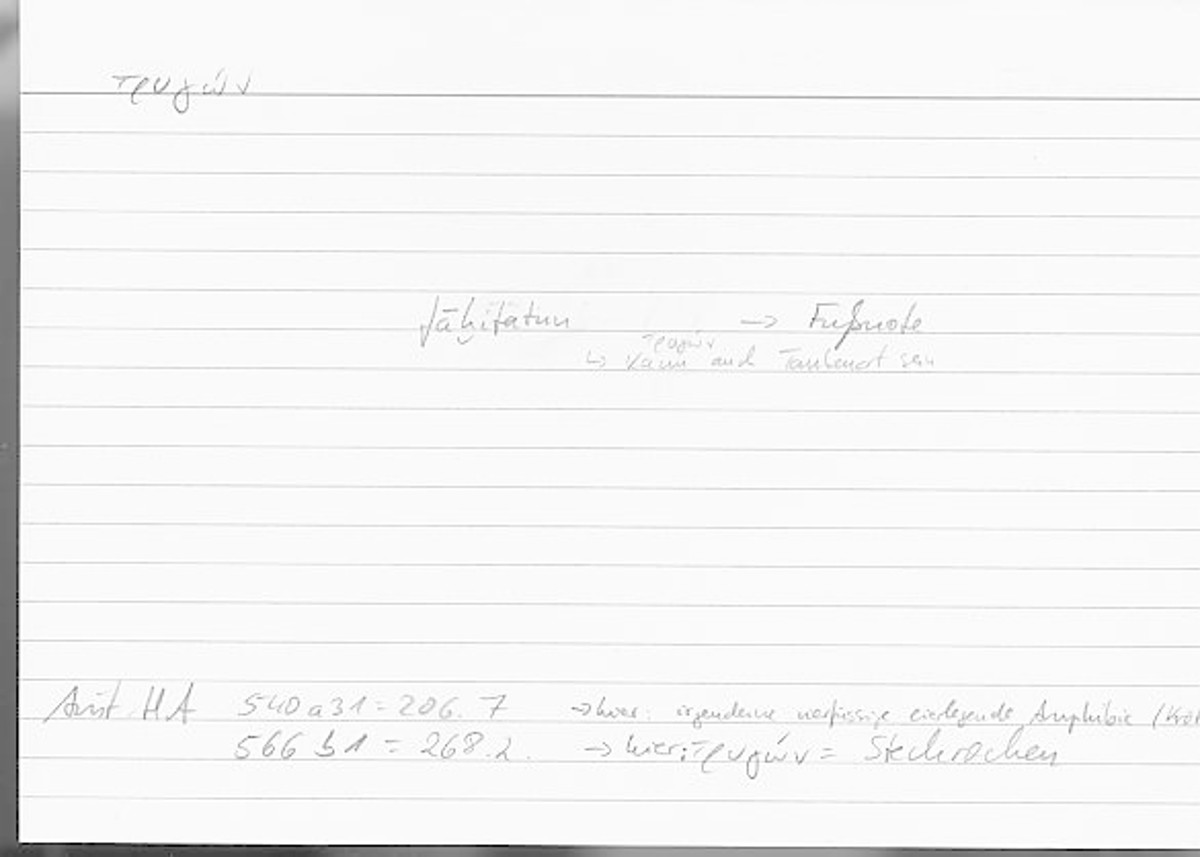 τρυγών
fāḫitatun → Fußnote
τρυγών
↳ kann auch Taubenart sein
Arist. HA 540a31 = 206.7 → hier: irgendeine vierfüssige eierlegende Amphibie (Kröt
566 b1 = 268.2. → hier: τρυγών = Stechrochen